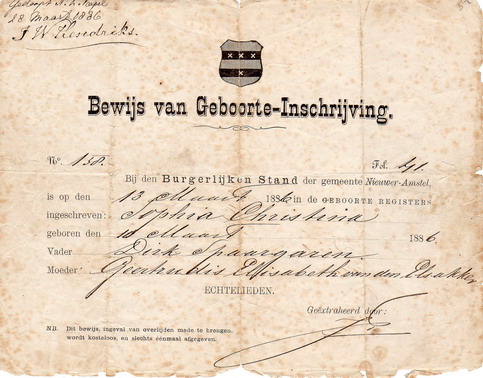 Gedoopt N. K. Kapel
28 Maart 1886
J W Hendriks.
Bewijs van Geboorte-Inschrijving.
No. 158.
Fol. 41.
Bij den Burgerlijken Stand der gemeente Nieuwer-Amstel,
is op den 13 Maart 1886 in de GEBOORTE REGISTERS
ingeschreven: Sophia Christina
geboren den 10 Maart 1886.
Vader Dirk Spaargaren.
Moeder Geertrudis Elisabeth van den Elsakker
ECHTELIEDEN.
Geëxtraheerd door:
NB. Dit bewijs, ingeval van overlijden mede te brengen,
wordt kosteloos, en slechts éénmaal afgegeven.